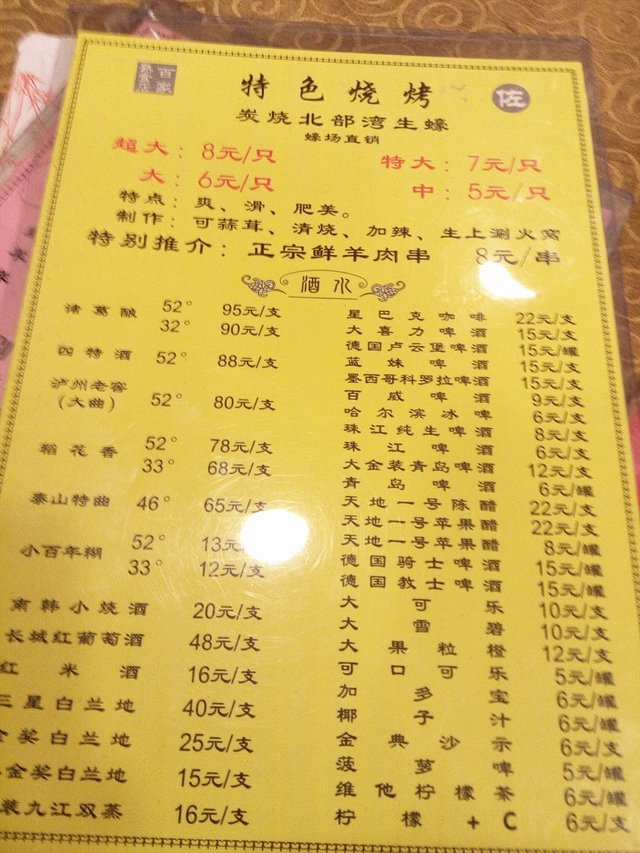 百家
熟食店
特色烧烤
佐
炭烧北部湾生蠔
蠔场直销
超大：8元/只 特大：7元/只
大：6元/只 中：5元/只
特点：爽、滑、肥美。
制作：可蒜茸、清烧、加辣、生上涮火窝
特别推介：正宗鲜羊肉串 8元/串
酒水
诸葛酿 52° 95元/支
32° 90元/支
四特酒 52° 88元/支
泸州老窖
(大曲) 52° 80元/支
稻花香 52° 78元/支
33° 68元/支
泰山特曲 46° 65元/支
小百年糊 52° 13元/支
33° 12元/支
南韩小烧酒 20元/支
长城红葡萄酒 48元/支
红米酒 16元/支
三星白兰地 40元/支
金奖白兰地 25元/支
金奖白兰地 15元/支
装九江双蒸 16元/支
星巴克咖啡 22元/支
大喜力啤酒 15元/支
德国卢云堡啤酒 15元/罐
蓝妹啤酒 15元/支
墨西哥科罗拉啤酒 15元/支
百威啤酒 9元/支
哈尔滨冰啤 6元/支
珠江纯生啤酒 8元/支
珠江啤酒 6元/支
大金装青岛啤酒 12元/支
青岛啤酒 6元/罐
天地一号陈醋 22元/支
天地一号苹果醋 22元/支
天地一号苹果醋 8元/罐
德国骑士啤酒 15元/罐
德国教士啤酒 15元/罐
大可乐 10元/支
大雪碧 10元/支
大果粒橙 12元/支
可口可乐 5元/罐
加多宝 6元/罐
椰子汁 6元/罐
金典沙示 6元/支
菠萝啤 5元/罐
维他柠檬茶 6元/支
柠檬+C 6元/支